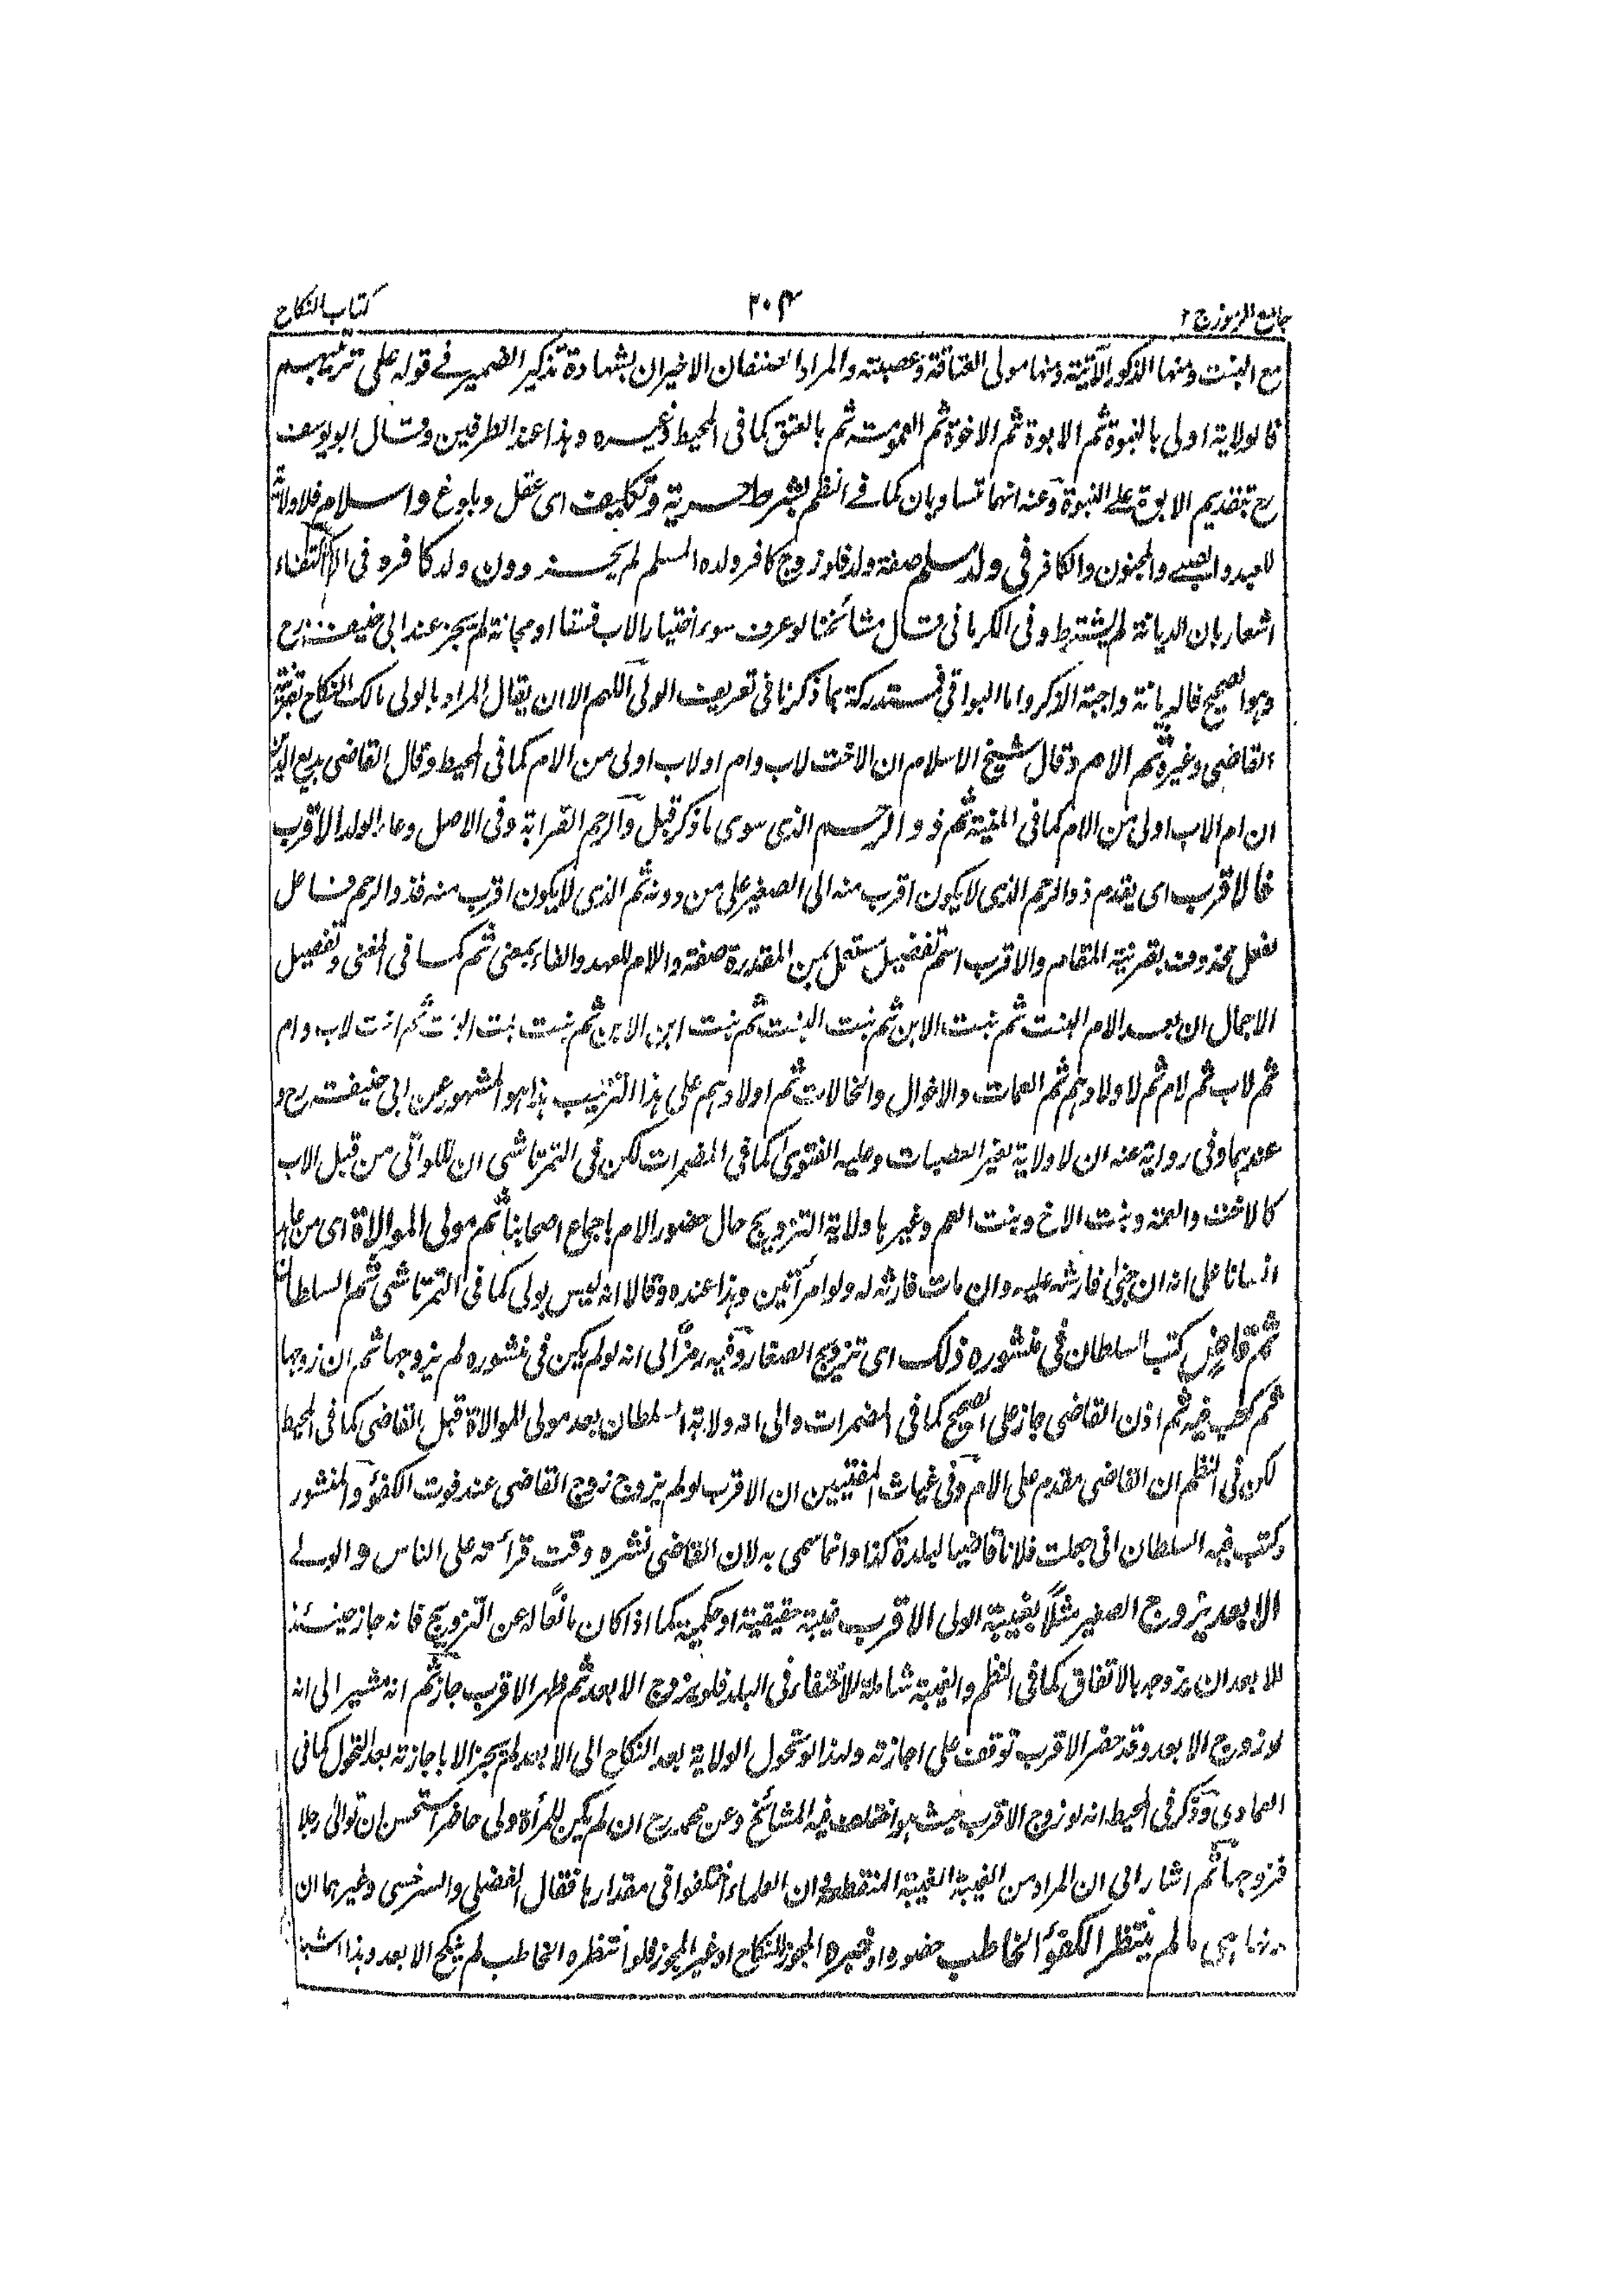 جامع الرموز ج ٢
٢٠٣
كتاب النكاح
مع البنت ومنها الذكور الآتية ومنها مولى العتاقة وعصبته والمراد الصنفان الاخيران بشهادة تذكير الضمير في قوله على ترتيبهم
فالولاية اولى بالبنوة ثم الابوة ثم الاخوة ثم العمومة ثم بالعتق كما في المحيط وغيره وهذا عند الطرفين وقال ابو يوسف
رح بتقديم الابوة على البنوة وعنه انهما تتساويان كما في النظم بشرط حرية وتكليف اى عقل وبلوغ واسلام فلا ولاية
لعبد والصبي والمجنون والكافر في ولد مسلم صفة ولد فلو زوج كافر ولده المسلم لم يجز دون ولد كافر وفي الاكتفاء
اشعار بان الديانة لم يشترط وفى الكرماني قال مشائخنا لو عرف سوء اختيار الاب فسقا او مجانة لم يجز عند ابى حنيفة رح
وهو الصحيح فالديانة واجبة الذكر واما البواقى فمستدركة بما ذكرنا في تعريف الولى اللهم الا ان يقال المراد بالولى مالك النكاح بقرينة
القاضى وغيره ثم الام وقال شيخ الاسلام ان الاخت لاب وام او لاب اولى من الام كما في المحيط وقال القاضى بديع الدين
ان ام الاب اولى من الام كما في المنية ثم ذو الرحم الذى سوى ما ذكر قبل والرحم القرابة وفى الاصل وعاء الولد الاقرب
فالاقرب اى يقدم ذو الرحم الذى لا يكون اقرب منه الى الصغير على من دونه ثم الذى لا يكون اقرب منه فذو الرحم فاعل
لفعل محذوف بقرينة المقام والاقرب اسم تفضيل مستعمل بمن المقدرة صفة واللام للعهد والفاء بمعنى ثم كما في المغنى وتفصيل
الاجمال ان بعد الام البنت ثم بنت الابن ثم بنت البنت ثم بنت ابن الابن ثم بنت بنت البنت ثم اخت لاب وام
ثم لاب ثم لام ثم لاولادهم ثم العمات والاخوال والخالات ثم اولادهم على هذا الترتيب هذا هو المشهور عن ابى حنيفة رح و
عندهما وفى رواية عنه ان لا ولاية لغير العصبات وعليه الفتوى كما في المضمرات لكن في التمرتاشى ان للواتى من قبل الاب
كالاخت والعمة وبنت الاخ وبنت العم وغيرها ولاية التزويج حال حضور الام باجماع اصحابنا ثم مولى الموالاة اى من عاهد
انسانا على انه ان جنى فارشه عليه وان مات فارثه له ولو امرأتين وهذا عنده وقالا انه ليس بولى كما في التمرتاشى ثم السلطان
ثم قاض كتب السلطان في منشوره ذلك اى تزويج الصغار وفيه رمز الى انه لو لم يكن في منشوره لم يزوجها ثم ان زوجها
ثم كتب فيه ثم اذن القاضى جاز على الصحيح كما في المضمرات والى انه ولاية السلطان بعد مولى الموالاة قبل القاضى كما في المحيط
لكن في النظم ان القاضى مقدم على الام وفى غياث المفتيين ان الاقرب لو لم يزوج زوج القاضى عند فوت الكفؤ والمنشور
وكتب فيه السلطان انى جعلت فلانا قاضيا لبلدة كذا وانما سمى به لان القاضى نشره وقت قرائته على الناس والولى
الابعد يزوج الصغير مثلًا بغيبة الولى الاقرب غيبة حقيقية او حكمية كما اذا كان مانعًا له عن التزويج فانه جاز حينئذ
للابعد ان يزوجه بالاتفاق كما في النظم والغيبة شاملة للاختفاء في البلد فلو يزوج الابعد ثم ظهر الاقرب جاز ثم انه مشير الى انه
لو زوج الابعد وقد حضر الاقرب توقف على اجازته ولهذا لو تحول الولاية بعد النكاح الى الابعد لم يجز الا باجازته بعد التحول كما في
العمادى وذكر في المحيط انه لو زوج الاقرب حيث هو اختلف فيه المشائخ وعن محمد رح ان لم يكن للمرأة ولى حاضر استحسن ان توالى رجلا
فزوجها ثم اشار الى ان المراد من الغيبة الغيبة المنقطعة وان العلماء اختلفوا في مقدارها فقال الفضلى والسرخسى وغيرهما ان
هى ما لم ينتظر الكفؤ الخاطب حضوره او خبره المجوز للنكاح او غير المجوز فلو انتظره الخاطب لم ينكح الابعد وهذا